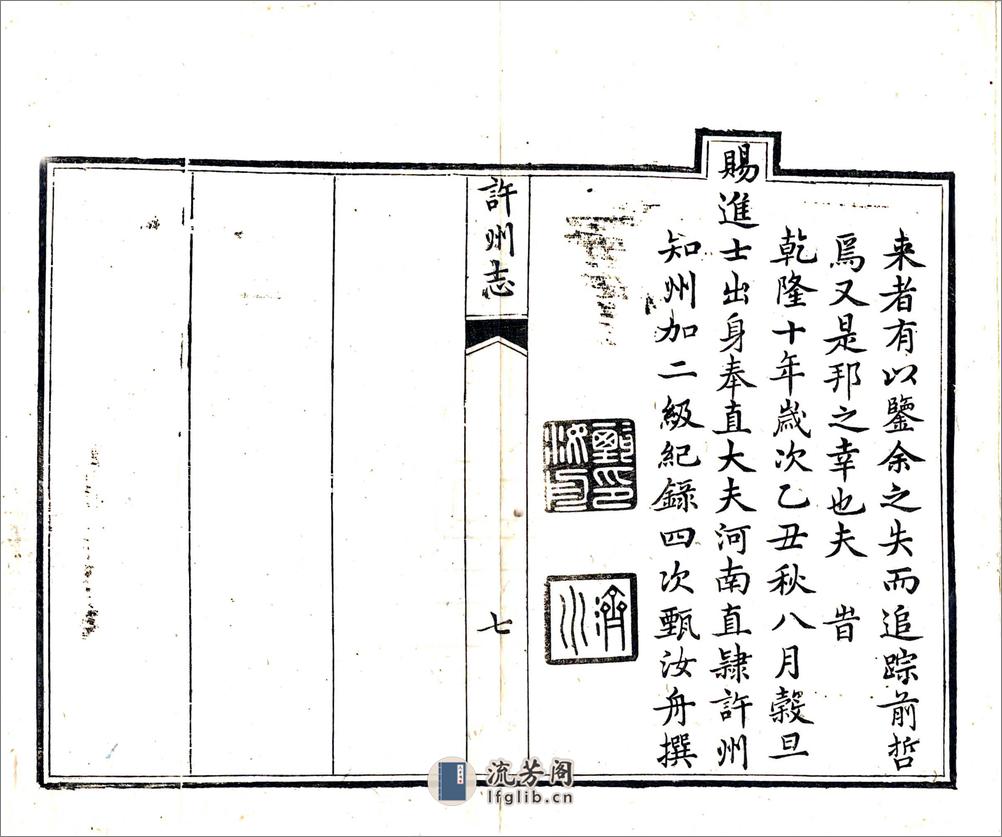 来者有以鑒余之失而追踪前哲
焉又是邦之幸也夫　旹
乾隆十年歲次乙丑秋八月榖旦
賜進士出身奉直大夫河南直隸許州
知州加二級紀錄四次甄汝舟撰
甄印汝舟
濟川
許州志
七
流芳阁
lfglib.cn